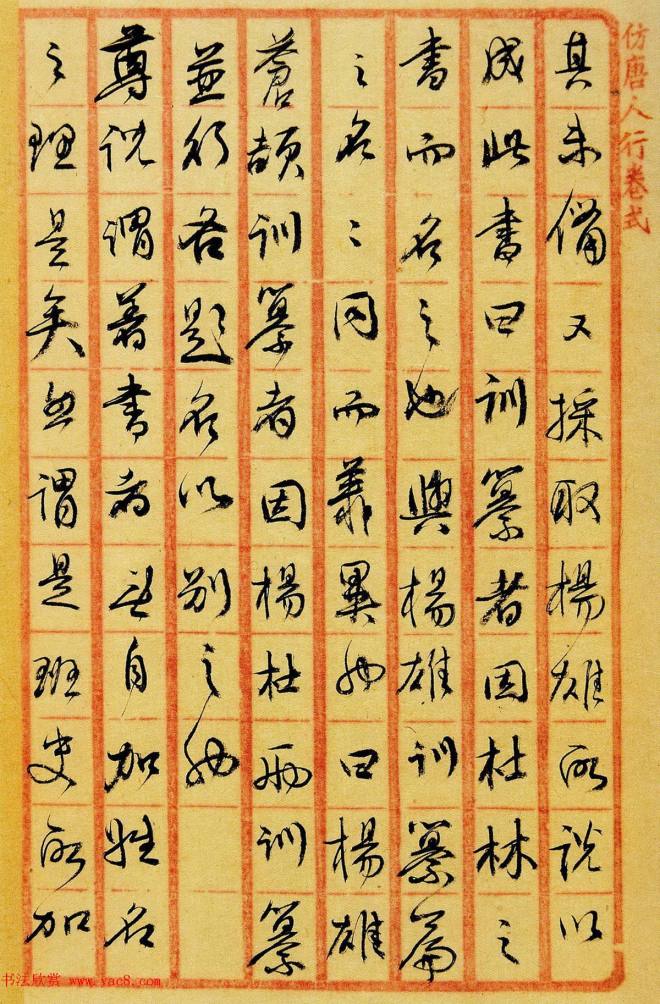 仿唐人行卷式
其未備又採取楊雄所說以
成此書曰訓纂者因杜林之
書而名之也與楊雄訓纂篇
之名〻同而義異也曰楊雄
蒼頡訓纂者因楊杜兩訓纂
並行各題名以別之也
尊說謂著書者無自加姓名
之理是矣謂是班史所加
书法欣赏 www.yac8.com